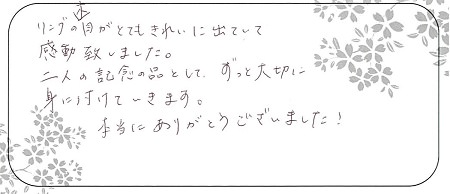 リングの白がとてもきれいに出ていて
感動致しました。
二人の記念の品として、ずっと大切に
身に付けていきます。
本当にありがとうございました!